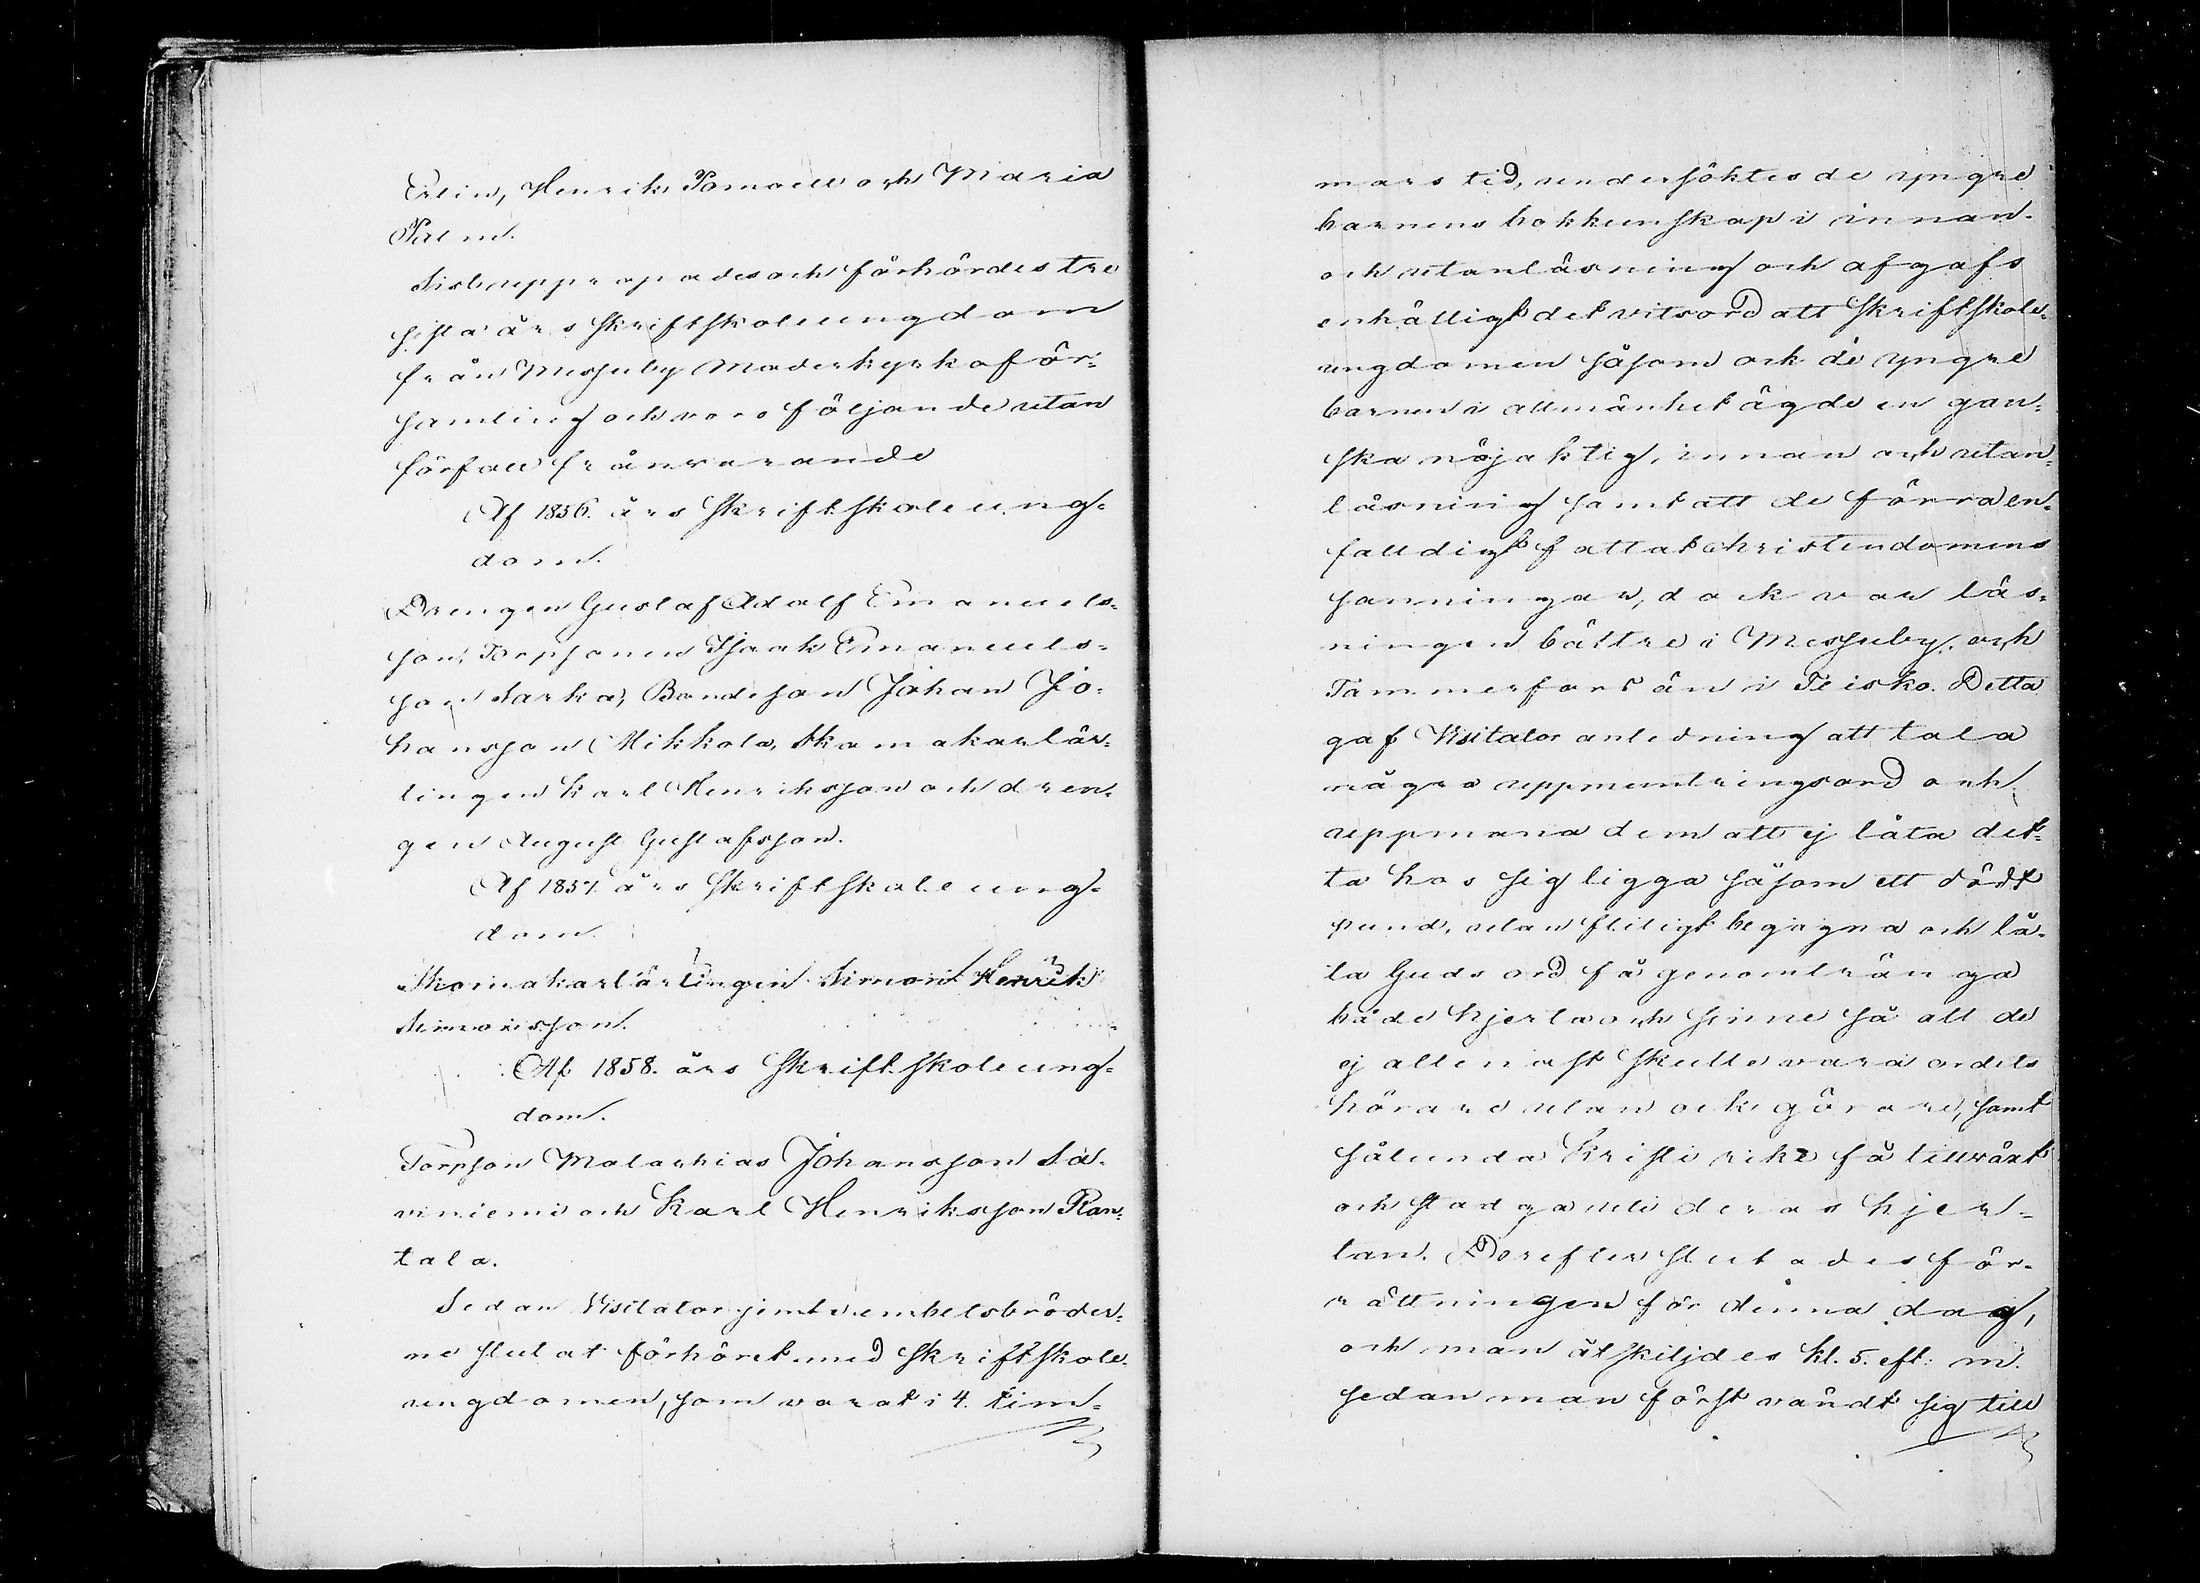 Erlin, Henrik Pomoell och Maria
Palm.
Sist uppropades och förhördes tre
sista års skriftskoleungdom
från Messuby Moderkyrkoför-
samling och voro följande utan
förfall frånvarande
Af 1856. års Skriftskoleung-
dom.
Drengen Gustaf Adolf Emanuels-
son, Torpsonen Isaak Emanuels-
son Sarka, Bondeson Johan Jo-
hansson Mikkola, Skomakarlär-
lingen Karl Henriksson och dren-
gen August Gustafsson.
Af 1857. års Skriftskoleung-
dom.
Skomakarlärlingen Simon Henrik
Simonsson.
Af 1858. års Skriftskoleung-
dom.
Torpson Malachias Johansson Sa-
viniemi och Karl Henriksson Ran-
tala.
Sedan Visitator jemte embetsbröder-
ne slutat förhöret med Skriftskole-
ungdomen, som varat i 4. tim-
mars tid, undersöktes de yngre
barnens bokkunskap i innan-
och utanläsning och afgafs
enhälligt det vitsord att Skriftskole-
ungdomen såsom ock de yngre
barnen i allmänhet ägde en gan-
ska nöjaktig, innan och utan-
läsning samt att de förra en-
falldigt fattat christendomens
sanningar, dock var läs-
ningen bättre i Messuby, och
Tammerfors än i Teisko. Detta
gaf Visitator anledning att tala
några uppmuntringsord och
uppmana dem att ej låta det-
ta hos sig ligga såsom ett dödt
pund, utan flitigt begagna och lå-
ta Guds ord få genomtränga
både hjerta och sinne så att de
ej allenast skulle vara ordets
hörare utan ock görare, samt
sålunda Kristi rike få tillväxt
och stadga uti deras hjer-
tan. Derefter slutades för-
rättningen för denna dag,
och man åtskiljdes kl. 5. eft. m.
sedan man först vändt sig till